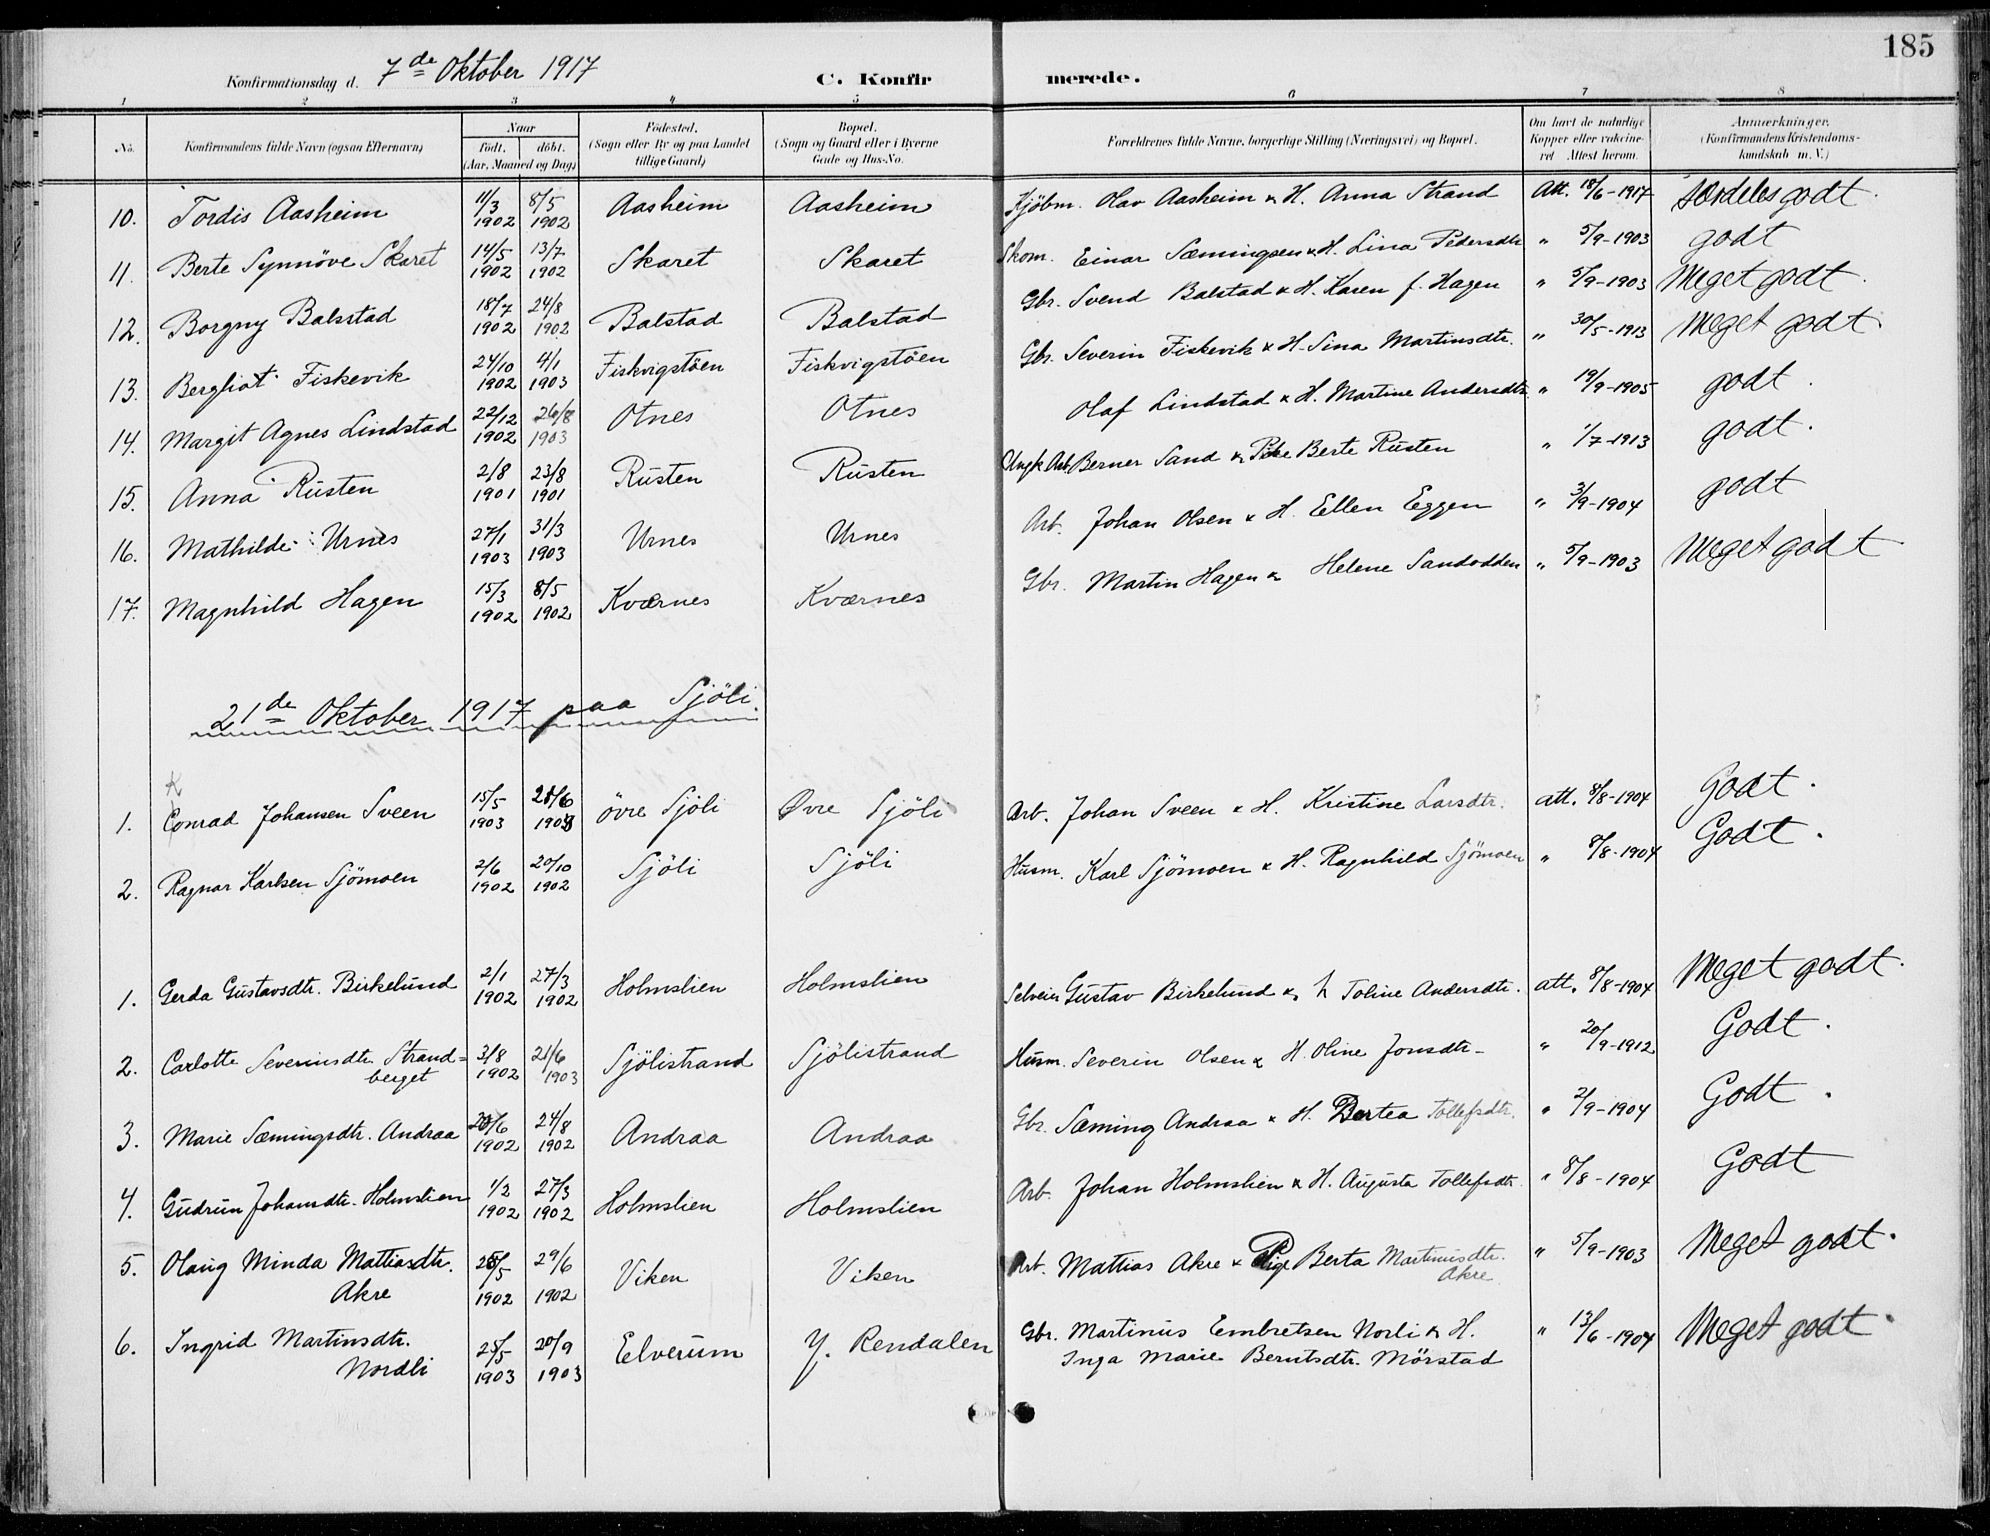 185
Konfirmationsdag d. 7de Oktober 1917 C. Konfirmerede.
1 2 3 4 5 6 7 8
No. Konfirmandens fulde Navn (ogsaa Efternavn) Naar født. døbt. (Aar, Maaned og Dag) Fødested. (Sogn eller By og paa Landet tillige Gaard) Bopæl. (Sogn og Gaard eller i Byerne Gade og Hus-No. Forældrenes fulde Navne, borgerlige Stilling (Næringsvei) og Bopæl. Om havt de naturlige Kopper eller vaccineret. Attest herom. Anmærkninger. (Konfirmandens Kristendomskundskab m. V.)
10. Tordis Aasheim 11/3 1902 8/5 1902 Aasheim Aasheim Kjöbm. Olav Aasheim & H. Anna Strand Att. 18/6-1917 særdeles godt.
11. Berte Synnöve Skaret 14/5 1902 13/7 1902 Skaret Skaret Skom. Einar Sæmingsen & H. Lina Pedersdtr " 5/9-1903 godt
12. Borgny Balstad 18/7 1902 24/8 1902 Balstad Balstad Gbr. Svend Balstad & H. Karen f. Hagen " 5/9-1903 Meget godt.
13. Bergliot Fiskevik 24/10 1902 4/1 1903 Fiskvigstöen Fiskvigstöen Gbr. Severin Fiskevik & H. Sina Martinsdtr. " 30/5-1913 Meget godt.
14. Margit Agnes Lindstad 22/12 1902 26/8 1903 Otnes Otnes Olaf Lindstad & H. Martine Andersdtr " 19/9-1905 godt.
15. Anna Rusten 2/8 1901 23/8 1901 Rusten Rusten Ungk. Arb. Berner Sand & Pike Berte Rusten " 1/7-1913 godt.
16. Mathilde Urnes 27/1 1903 31/3 1903 Urnes Urnes Arb. Johan Olsen & H. Ellen Eggen " 3/9-1904 godt
17. Magnhild Hagen 15/3 1902 8/5 1902 Kværnes Kværnes Gbr. Martin Hagen & Helene Sandodden " 5/9-1903 Meget godt
21de Oktober 1917 paa Sjöli.
K
1. Conrad Johansen Sveen 15/5 1903 28/6 1903 övre Sjöli Øvre Sjöli Arb. Johan Sveen & H. Kristine Larsdtr. att. 8/8-1904 Godt.
2. Ragnar Karlsen Sjömoen 2/6 1902 20/10 1902 Sjöli Sjöli Husm. Karl Sjömoen & H. Ragnhild Sjömoen " 8/8-1904 Godt.
1. Gerda Gustavsdtr. Birkelund 2/1 1902 27/3 1902 Holmslien Holmslien Selveier Gustav Birkelund & h Toline Andersdtr. att. 8/8-1904 Meget godt.
2. Carlotte Severinsdtr. Strand= 3/8 1902 21/6 1903 Sjölistrand Sjölistrand Husm. Severin Olsen & H. Oline Jonsdtr- " 20/9-1912 Godt.
berget
3. Marie Sæmingsdtr. Andraa 20/6 1902 24/8 1902 Andraa Andraa Gbr. Sæming Andraa & H. Bertea Tollefsdtr. " 2/9-1904 Godt.
4. Gudrun Johansdtr. Holmslien 1/2 1902 27/3 1902 Holmslien Holmslien Arb. Johan Holmslien & H. Augusta Tollefsdtr " 8/8-1904 Godt
5. Olaug Minda Mattiasdtr. 28/5 1902 29/6 1902 Viken Viken Arb. Mattias Akre & Pige Berta Martinusdtr. " 5/9-1903 Meget godt.
Akre Akre
6. Ingrid Martinsdtr. 25/5 1903 20/9 1903 Elverum Y. Rendalen Gbr. Martinus Embretsen Norli & H. " 13/6-1904 Meget godt.
Nordli Inga Marie Berntsdtr. Mörstad